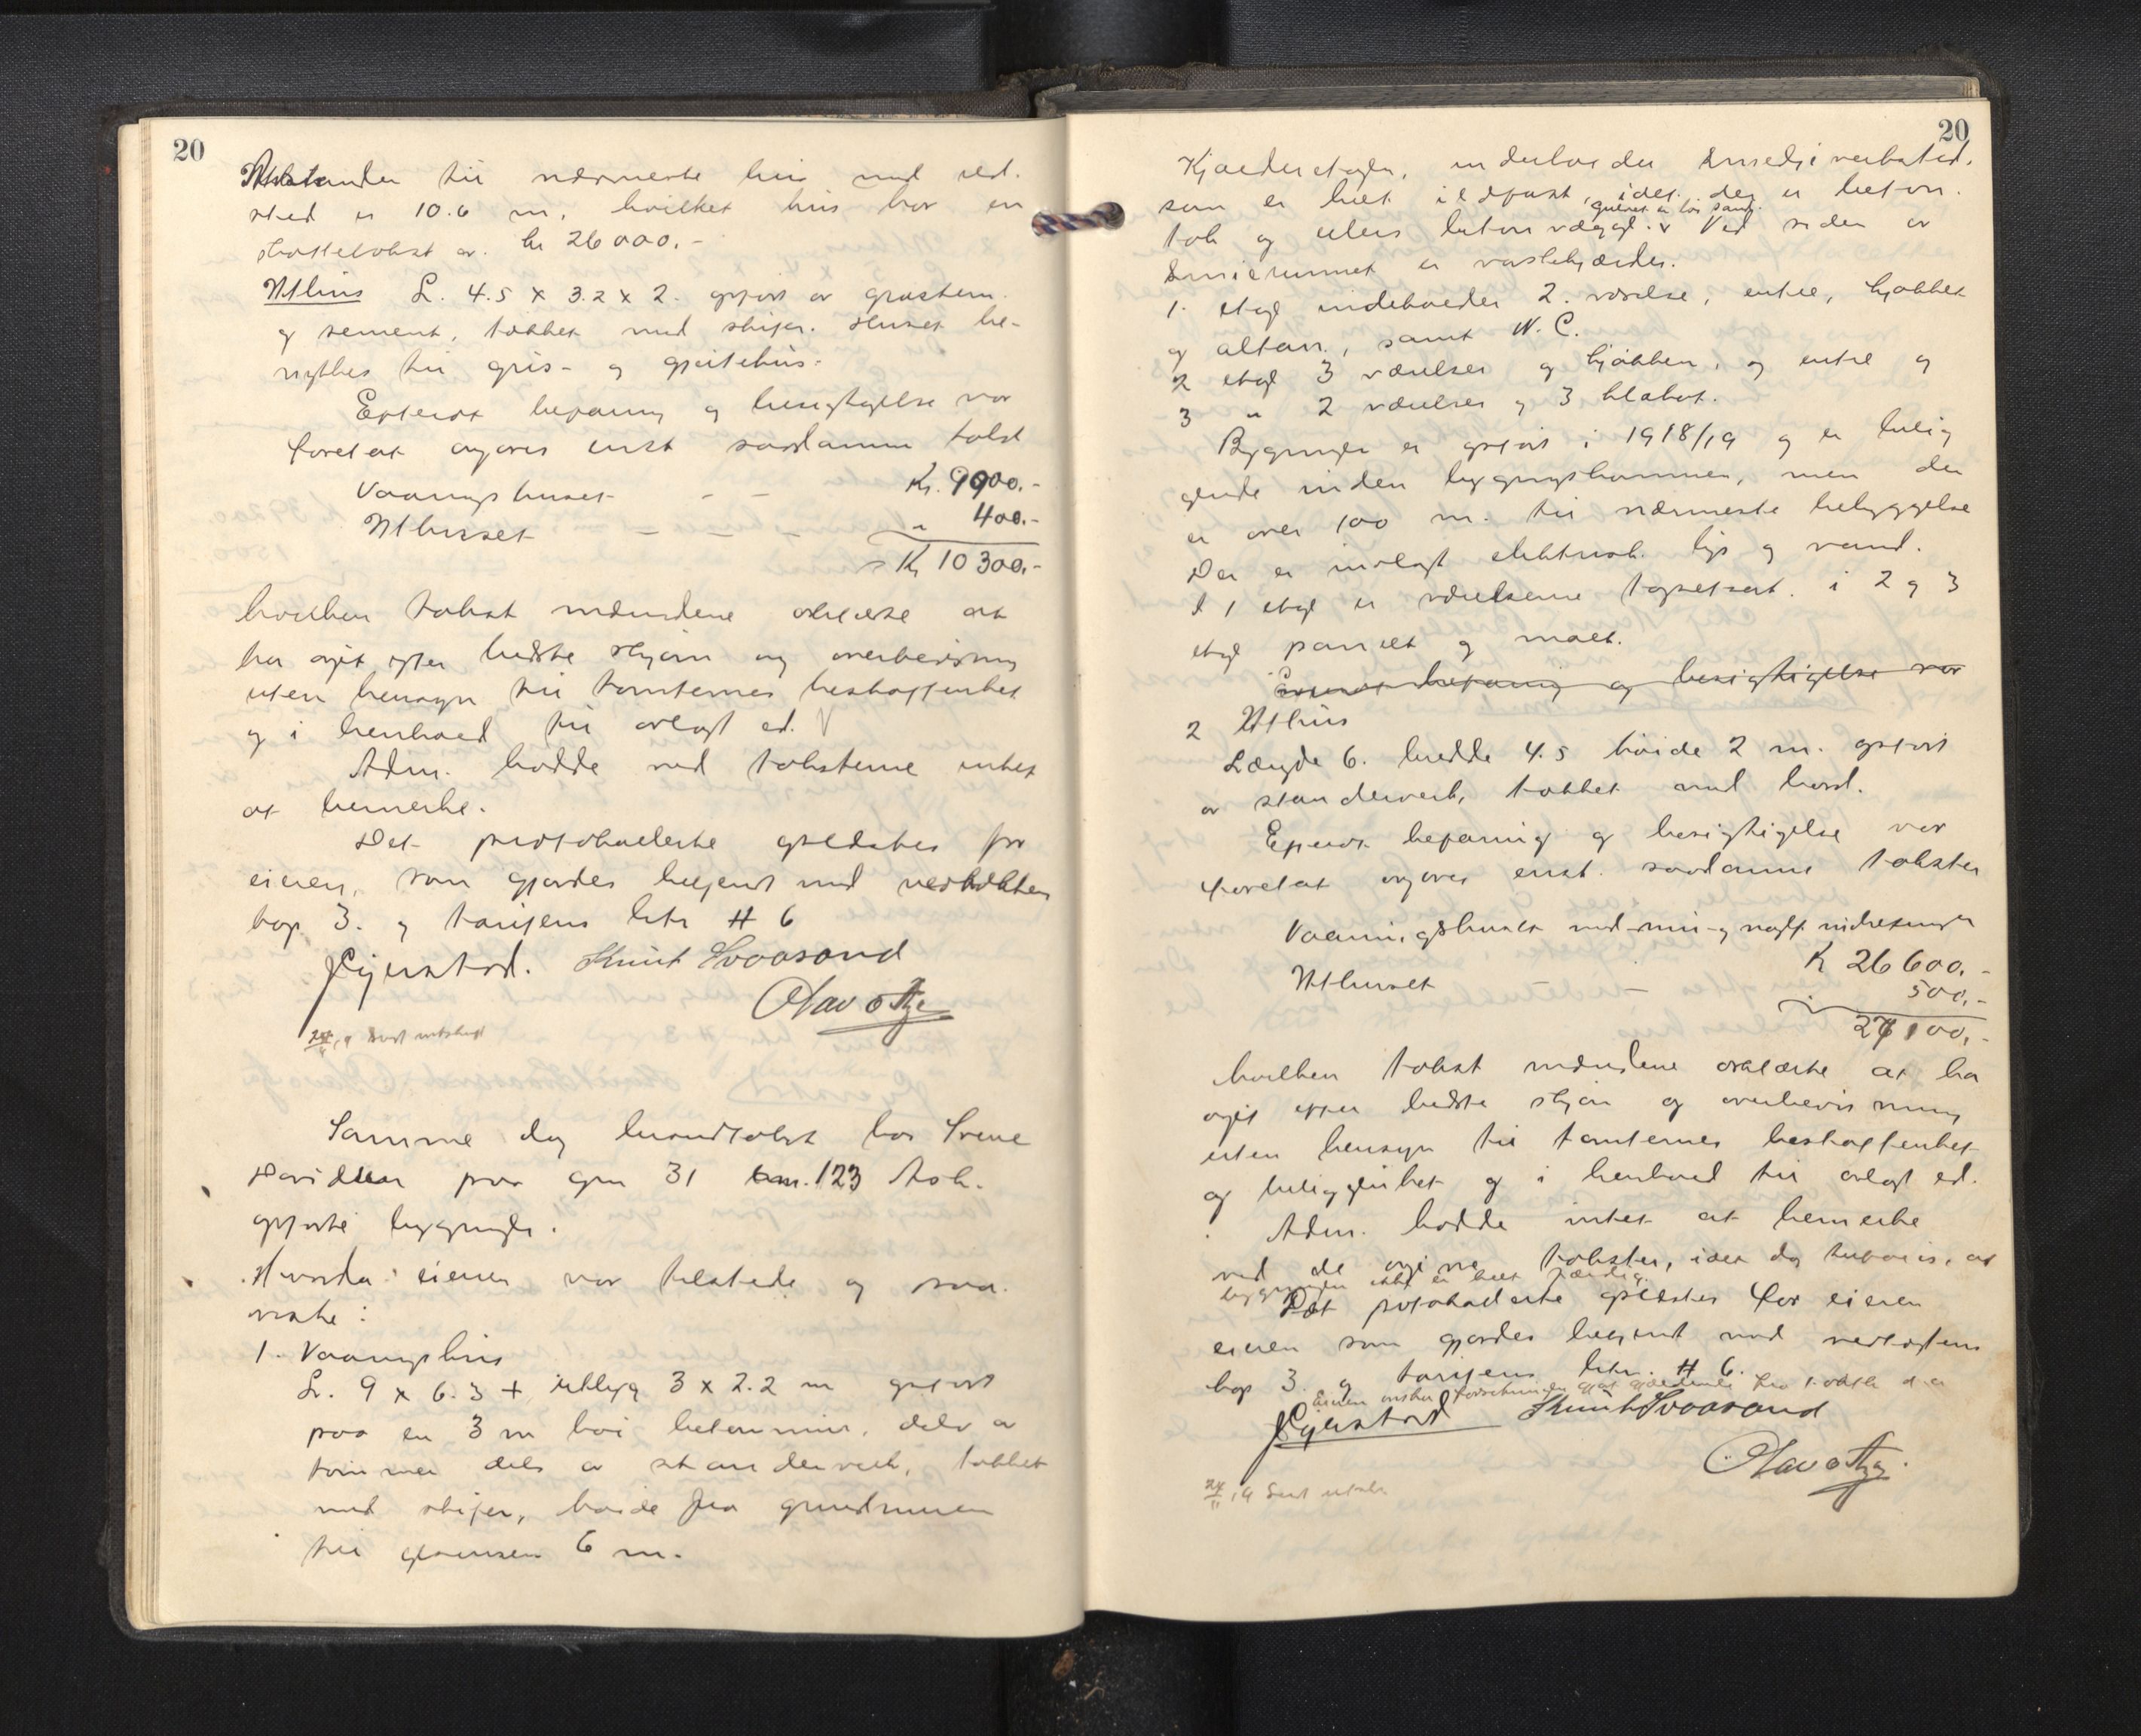 20
Avstanden til nærmeste hus med ild-
sted er 10.6 m. hvilket hus har en
skattetakst av kr 26000.-
Uthus L. 4.5 x 3.2 x 2. opført av graasten
og sement, tækket med skifer. Huset be-
nyttes til gris- og gjeitehus.
Efterat befaring og besigtigelse var
foretat avgaves enst. saadanne takst
Vaaningshuset - - Kr. 9900.-
Uthuset - - - " 400.-
Kr 10300.-
hvilken takst mændene erklærte at
ha avgit efter bedste skjøn og overbevisning
uten hensyn til tomternes beskaffenhet
og i henhold til avlagt ed.
Adm. hadde ved taksterne intet
at bemerke.
Det protokollerte oplæstes for
eieren, som gjordes bekjent med vedtækten
kap 3. og tarifens litr H 6
Knut Svaasand
Olav
24/11 19 Sendt utskrift
Samme dag brandtakst hos Svene
Davidsen paa gnr 31 bnr. 123 Ask.
opførte bygninger.
Hvorda eieren var tilstede og paa-
viste:
1. Vaaningshus
L. 9 x 6.3 + utbygg 3 x 2.2 m opført
paa en 3 m høi betonmur, dels av
tømmer dels av standerverk, tækket
med skifer, høide fra grundmuren
til gesimsen 6 m.
20
Kjælderetagen, indeholder Smedjeverksted,
som er helt ildfast, idet der er beton
gulvet er løs sand.
tak og ellers beton vægge. v Ved siden av
Smierummet er vaskekjælder.
1. etage indeholder 2. værelse, entre, kjøkken
og altan, samt W.C.
2 etage 3 værelser og kjøkken, og entre og
3 " 2 værelser og 3 klævet.
Bygningen er opført i 1918/19 og er belig-
gende inden bygningskommunen, men der
er over 100 m. til nærmeste bebyggelse
Der er indlagt elektrisk lys og vand.
I 1 etage er værelserne tapetsert. i 2 og 3
etage panelt og malt.
Efterat befaring og besigtigelse var
2 Uthus
Længde 6. bredde 4.5 høide 2 m. opført
av standerverk, tækket med bord.
Efterat befaring og besigtigelse var
foretat avgaves enst. saadanne takster
Vaaningshuset med mur og indretning
K 26600.-
Uthuset - 500.-
27100.-
hvilken takst mændene erklærte at ha
avgit efter bedste skjøn og overbevisning
uten hensyn til tomternes beskaffenhet
og beliggenhet og i henhold til avlagt ed.
Adm. hadde intet at bemerke
ved de avgivne takster, idet dog at
bygningen ikke er helt færdig.
Det protokollerte oplæstes for eieren
eieren som gjordes bekjent med vedtægtens
kap 3. og tarifens litr. H 6.
Eieren ønsker forsikringen gjort gjældende fra
Knut Svaasand
Olav
24/11 19 Sendt utskr.